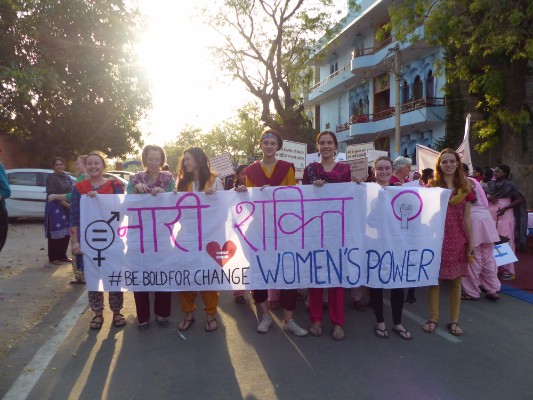 नारी शक्ति
#BE BOLD FOR CHANGE WOMEN'S POWER